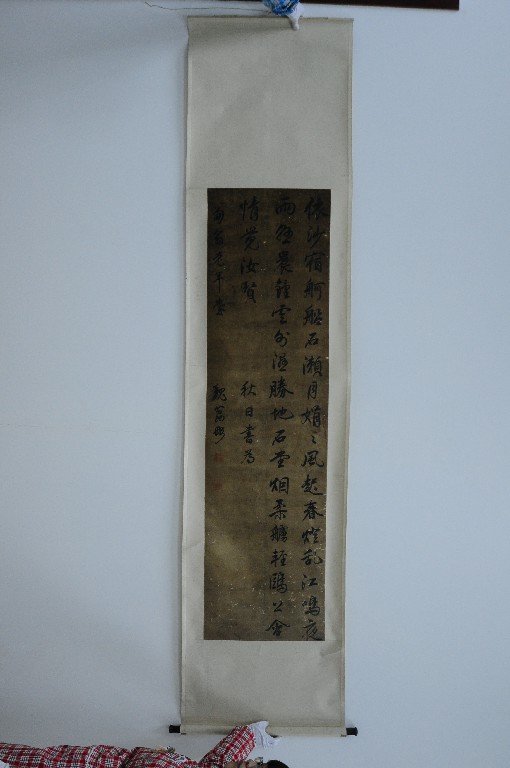 依沙宿舸船石瀨月娟〻風起春燈亂江鳴夜
雨懸晨鐘雲外濕勝地石堂烟柔艣輕鷗外含
情覺汝賢 秋日書為
老年臺 魏